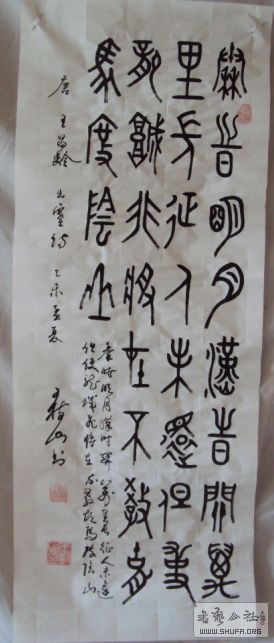 秦時明月漢時關萬
里長征人未還但使
龍城飛將在不教胡
馬度陰山
秦時明月漢時關萬里長征人未還
但使龍城飛將在不教胡馬度陰山
唐王昌齡出塞詩乙未孟夏
山书
書藝公社
WWW.SHUFA.ORG